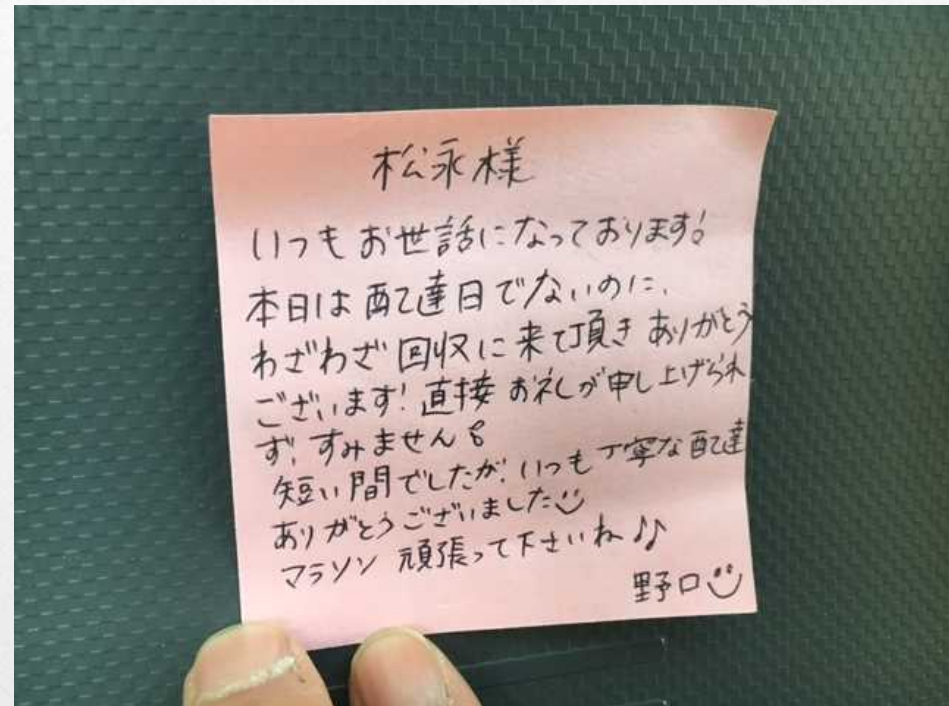 松永様
いつもお世話になっております!
本日は配達日でないのに、
わざわざ回収に来て頂きありがとう
ございます!直接お礼が申し上げられ
ず、すみません
短い間でしたが、いつも丁寧な配達
ありがとうございました
マラソン頑張って下さいね♪♪
野口